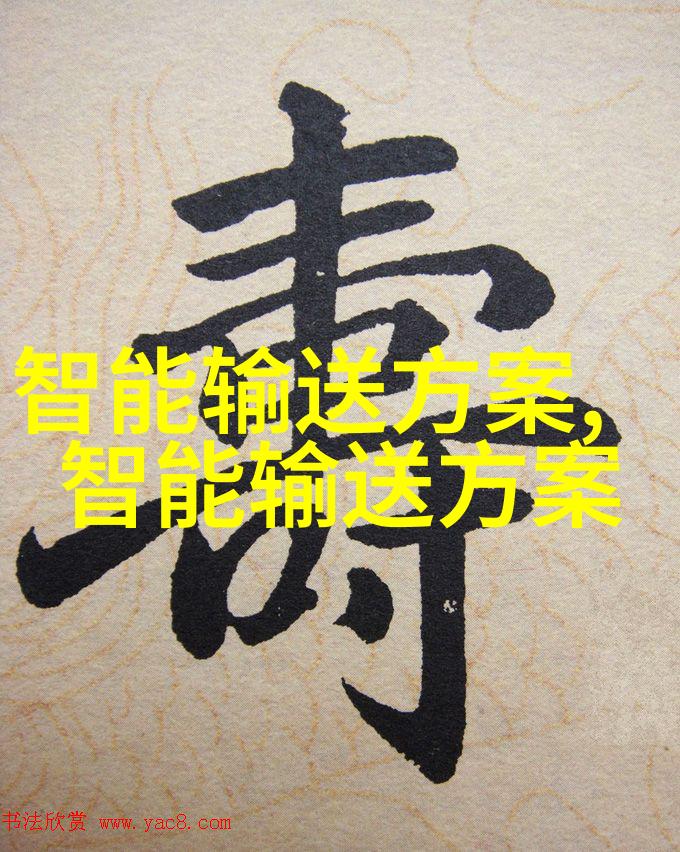 壽
智能输送方案,
智能输送方案
书法欣赏 www.yac8.com